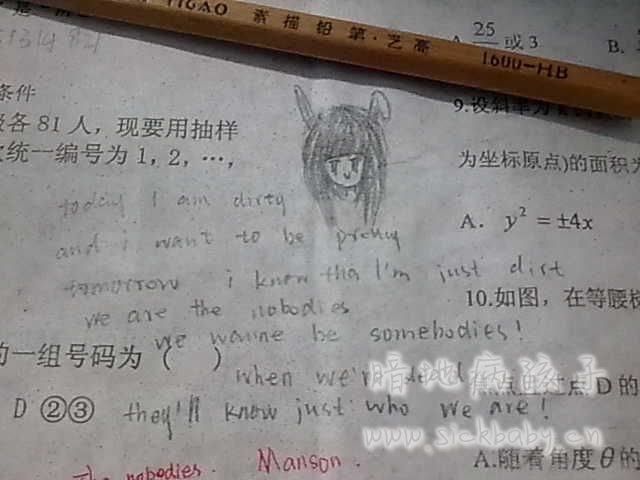 YIGAO 素描铅笔·艺高 1600-HB
A. 25 或 3
B.
条件
级各 81 人，现要用抽样
统一编号为 1，2，…，
9.设斜率为
为坐标原点)的面积为
A. y² = ±4x
today I am dirty
and i want to be pretty
tomorrow i know tha I'm just dirt
we are the nobodies
we wanne be somebodies!
when we're dead
they'll know just who we are!
10.如图，在等腰梯
的一组号码为（ ）
D ②③
点且过点 D 的
A.随着角度 θ 的
the nobodies. Manson.
暗地病孩子
www.sickbaby.cn